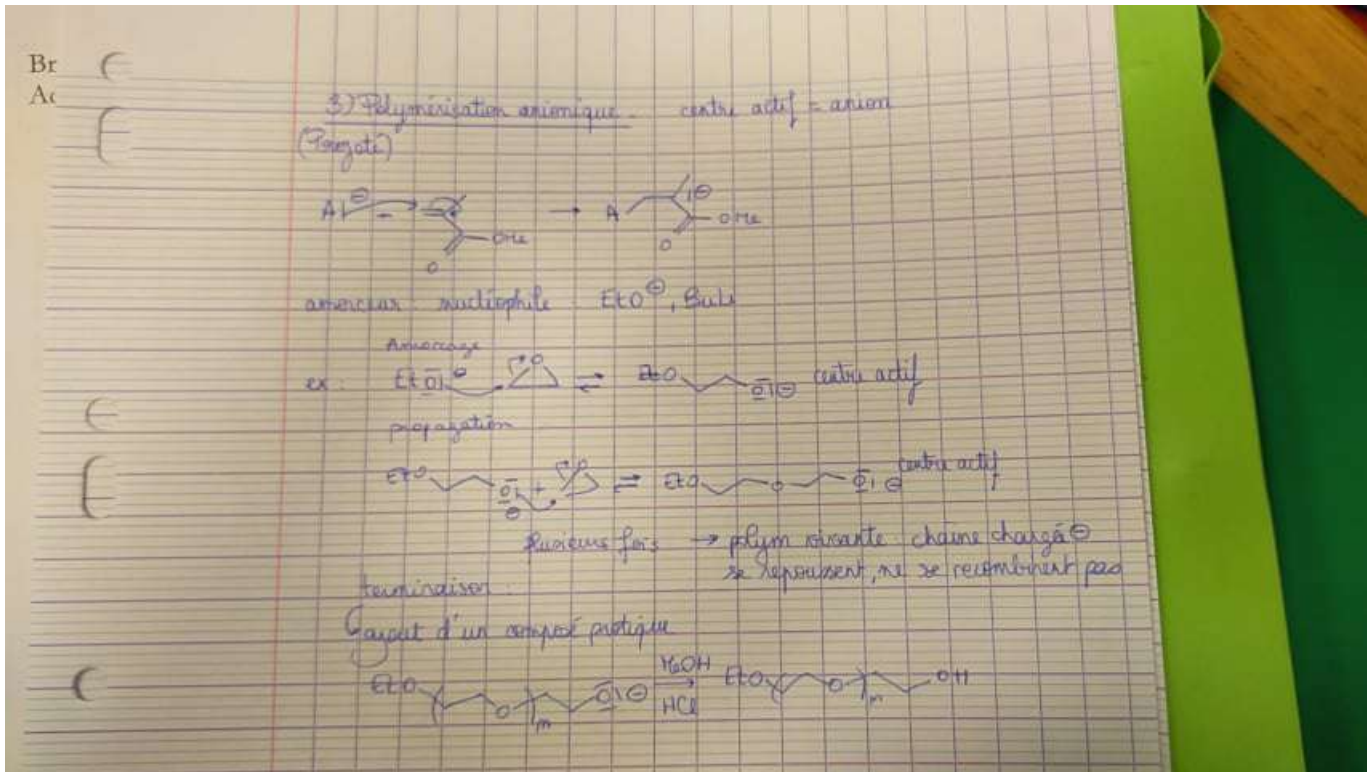 Br
Ac
3) Polymérisation anionique. centre actif = anion
A ⊖ → A ⊖
OMe OMe
O O
amorceur nucléophile EtO⊖, BuLi
Amorçage
ex: EtO⊖ O ⇌ EtO O⊖ centre actif
propagation
EtO O⊖ + O ⇌ EtO O O⊖ centre actif
Plusieurs fois → polym vivante chaîne chargé ⊖
se repoussent, ne se recombinent pas
terminaison :
ajout d'un composé protique
MeOH
EtO O m O⊖ → EtO O m OH
HCl